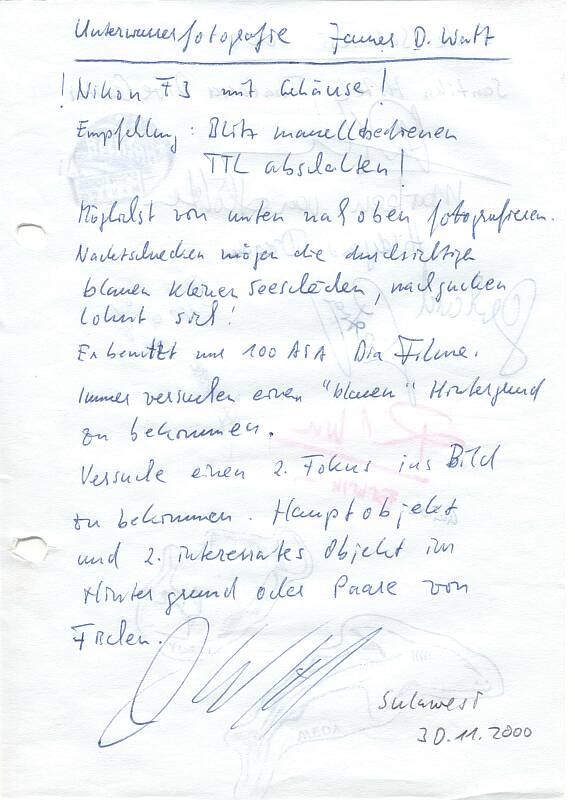 Unterwasserfotografie James D. Watt
! Nikon F3 mit Gehäuse !
Empfehlung : Blitz manuell bedienen
TTL abschalten !
Möglichst von unten nach oben fotografieren.
Nacktschnecken mögen die durchsichtigen
blauen kleinen Seescheiden, nachgucken
lohnt sich !
Er benutzt nur 100 ASA Dia Filme.
Immer versuchen einen "blauen" Hintergrund
zu bekommen.
Versuche einen 2. Fokus ins Bild
zu bekommen. Hauptobjekt
und 2. interessantes Objekt im
Hintergrund oder Paare von
Fischen.
Sulawesi
30.11.2000